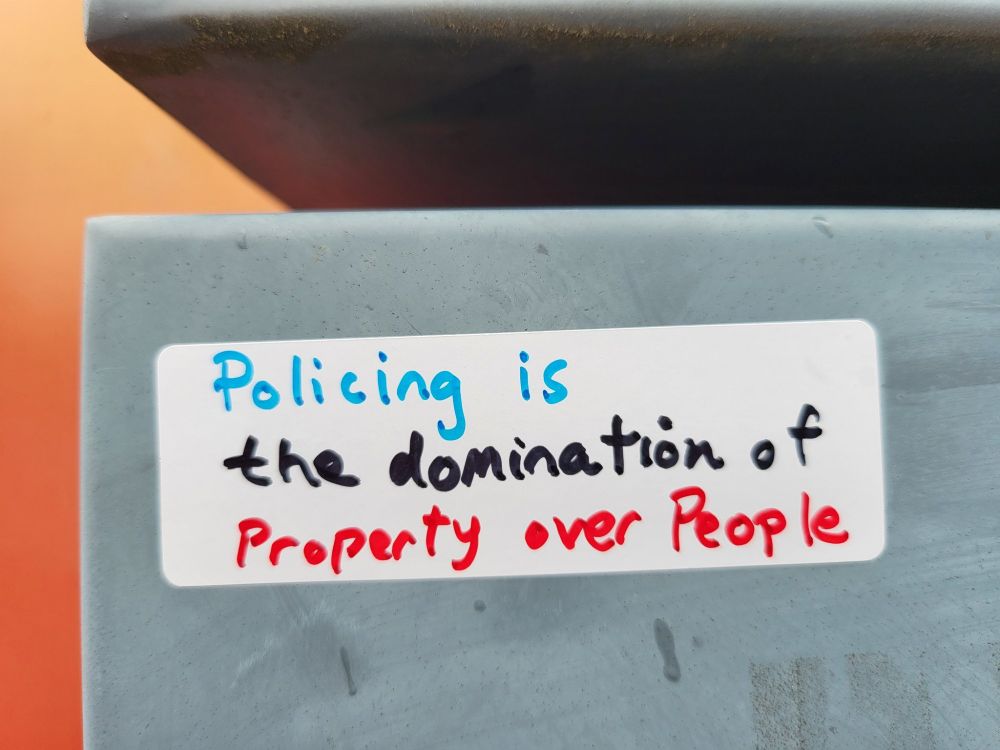 Policing is
the domination of
Property over People